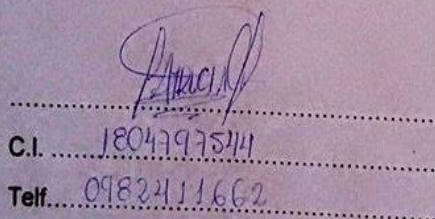 C.I. 1804797544
Telf. 0982411662